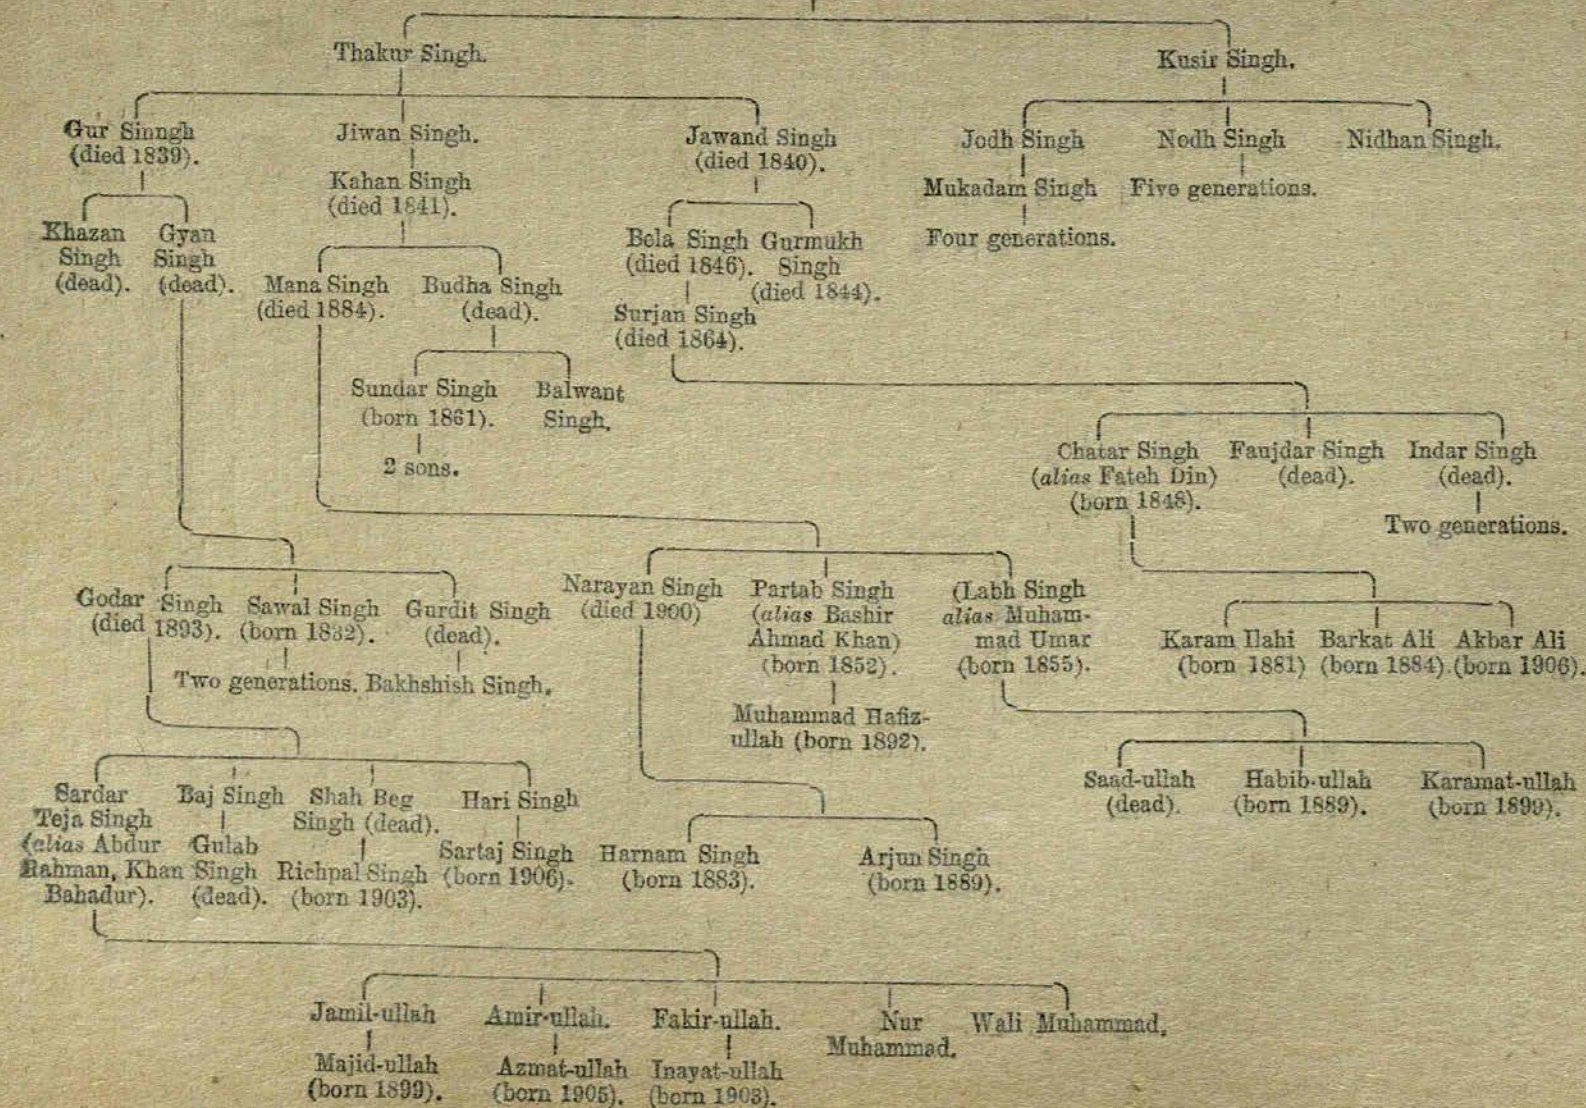 Thakur Singh.
Kusir Singh.
Gur Sinngh
(died 1839).
Jiwan Singh.
Jawand Singh
(died 1840).
Jodh Singh
Nodh Singh
Nidhan Singh.
Kahan Singh
(died 1841).
Mukadam Singh
Five generations.
Four generations.
Khazan
Singh
(dead).
Gyan
Singh
(dead).
Bela Singh
(died 1846).
Gurmukh
Singh
(died 1844).
Mana Singh
(died 1884).
Budha Singh
(dead).
Surjan Singh
(died 1864).
Sundar Singh
(born 1861).
Balwant
Singh.
2 sons.
Chatar Singh
(alias Fateh Din)
(born 1848).
Faujdar Singh
(dead).
Indar Singh
(dead).
Two generations.
Godar Singh
(died 1893).
Sawal Singh
(born 1832).
Gurdit Singh
(dead).
Two generations.
Bakhshish Singh.
Narayan Singh
(died 1900)
Partab Singh
(alias Bashir
Ahmad Khan)
(born 1852).
(Labh Singh
alias Muham-
mad Umar
(born 1855).
Karam Ilahi
(born 1881)
Barkat Ali
(born 1884).
Akbar Ali
(born 1906).
Muhammad Hafiz-
ullah (born 1892).
Saad-ullah
(dead).
Habib-ullah
(born 1889).
Karamat-ullah
(born 1899).
Sardar
Teja Singh
(alias Abdur
Rahman, Khan
Bahadur).
Baj Singh
Gulab
Singh
(dead).
Shah Beg
Singh (dead).
Richpal Singh
(born 1903).
Hari Singh
Sartaj Singh
(born 1906).
Harnam Singh
(born 1883).
Arjun Singh
(born 1889).
Jamil-ullah
Amir-ullah.
Fakir-ullah.
Nur
Muhammad.
Wali Muhammad.
Majid-ullah
(born 1899).
Azmat-ullah
(born 1905).
Inayat-ullah
(born 1903).